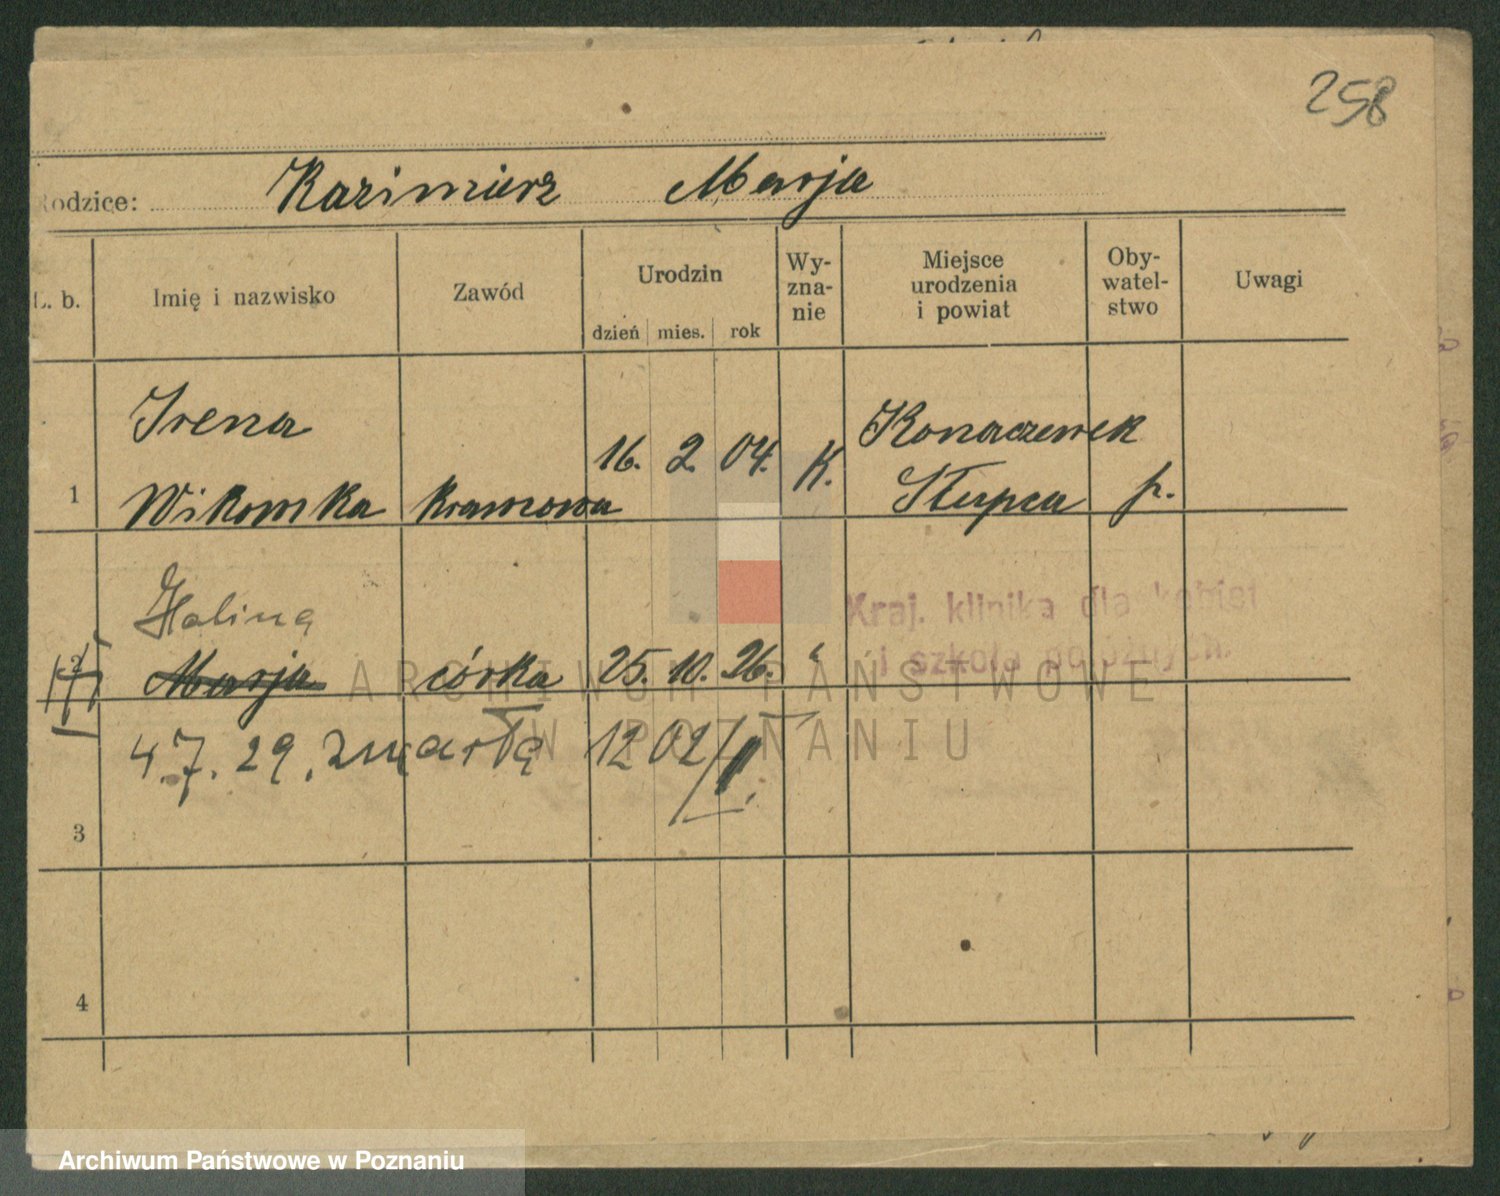 258
Rodzice: Kazimierz Marja
L. b. Imię i nazwisko Zawód Urodzin dzień mies. rok Wy-zna-nie Miejsce urodzenia i powiat Oby-watel-stwo Uwagi
Irena Konaczewek
16. 2. 04. K.
1 Wikomska krawcowa Słupca p.
Halina
2 Marja córka 25. 10. 26. "
Kraj. klinika dla kobiet
i szkoła położnych.
4.7.29. zmarła 1202/II.
3
4
ARCHIWUM PAŃSTWOWE
W POZNANIU
Archiwum Państwowe w Poznaniu